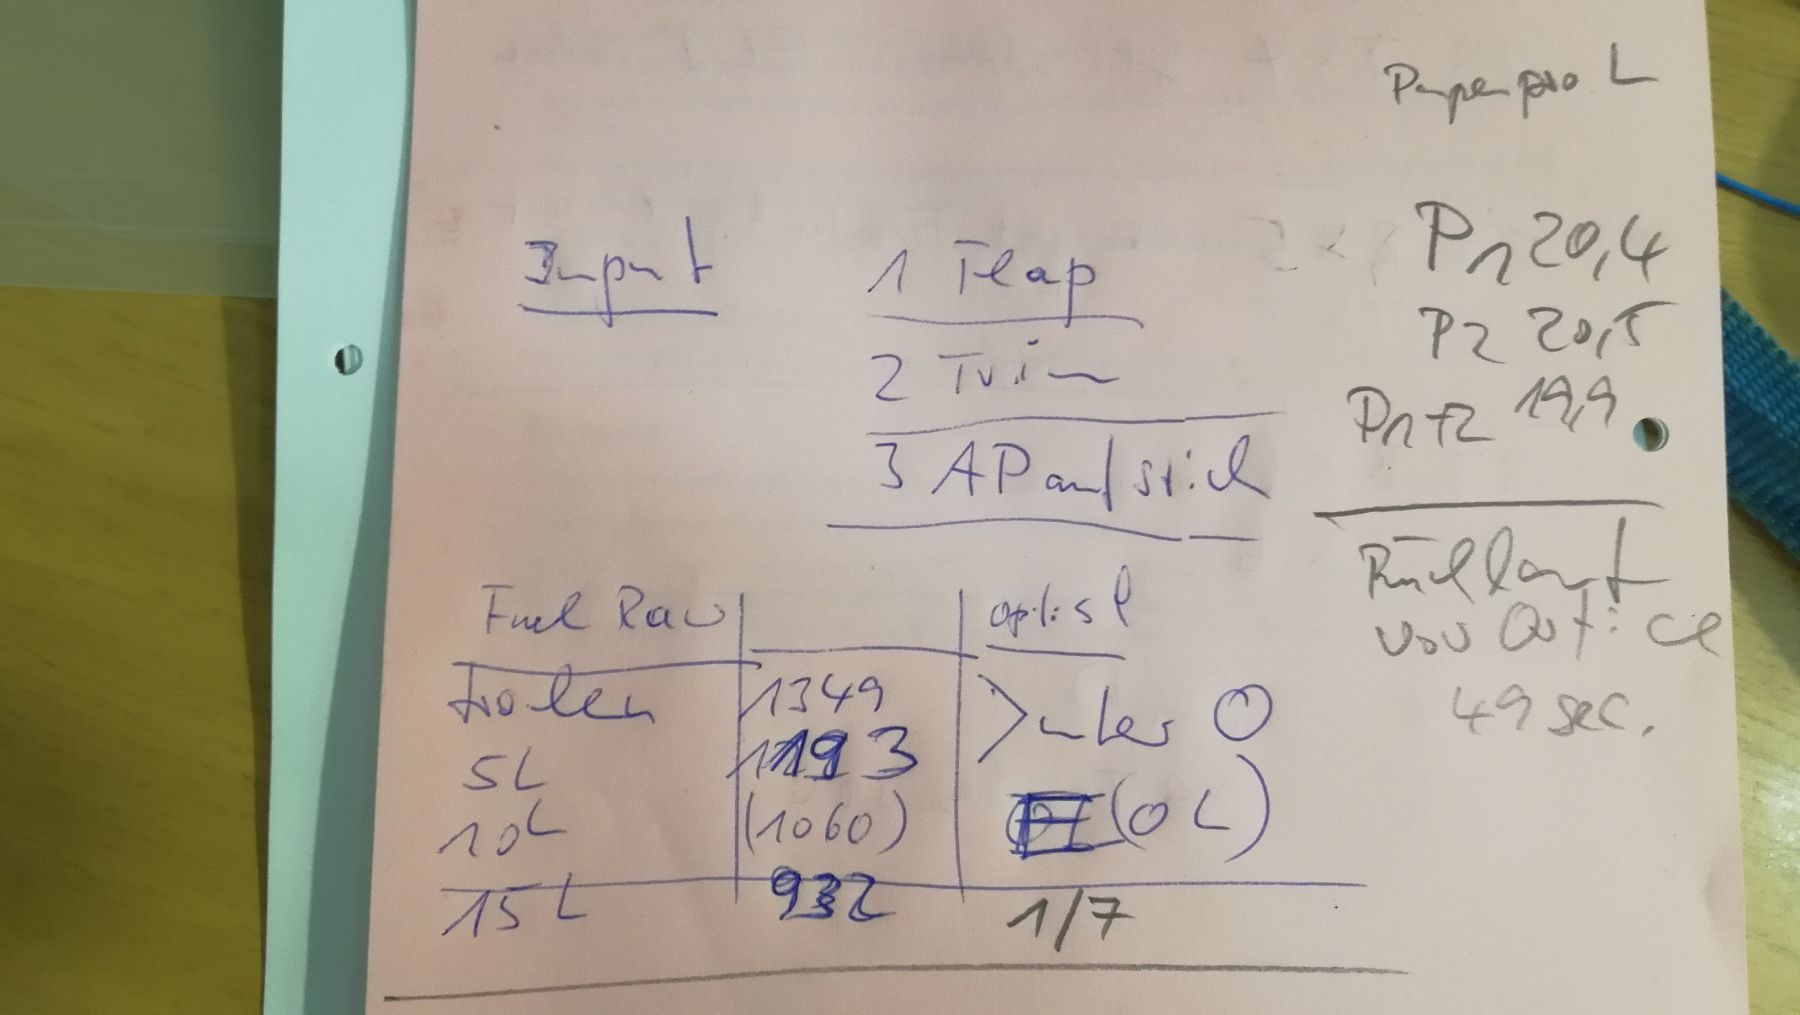 Pumpen pro L
Input
1 Flap
2 Trim
3 AP aufstieh
P1 20,4
P2 20,5
P1+2 19,9
Rücklauf
von Orfice
49 sec.
Fuel Raw
optisch
trocken 1349
>unter 0
5L 1193
10L (1060) (0L)
15L 932 1/7